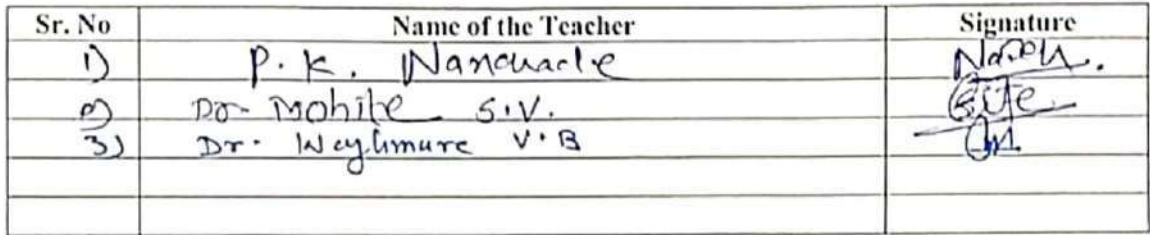 Sr. No Name of the Teacher Signature
1) P. K. Nanaware
2) Dr. Mohite S.V.
3) Dr. Waghmare V.B